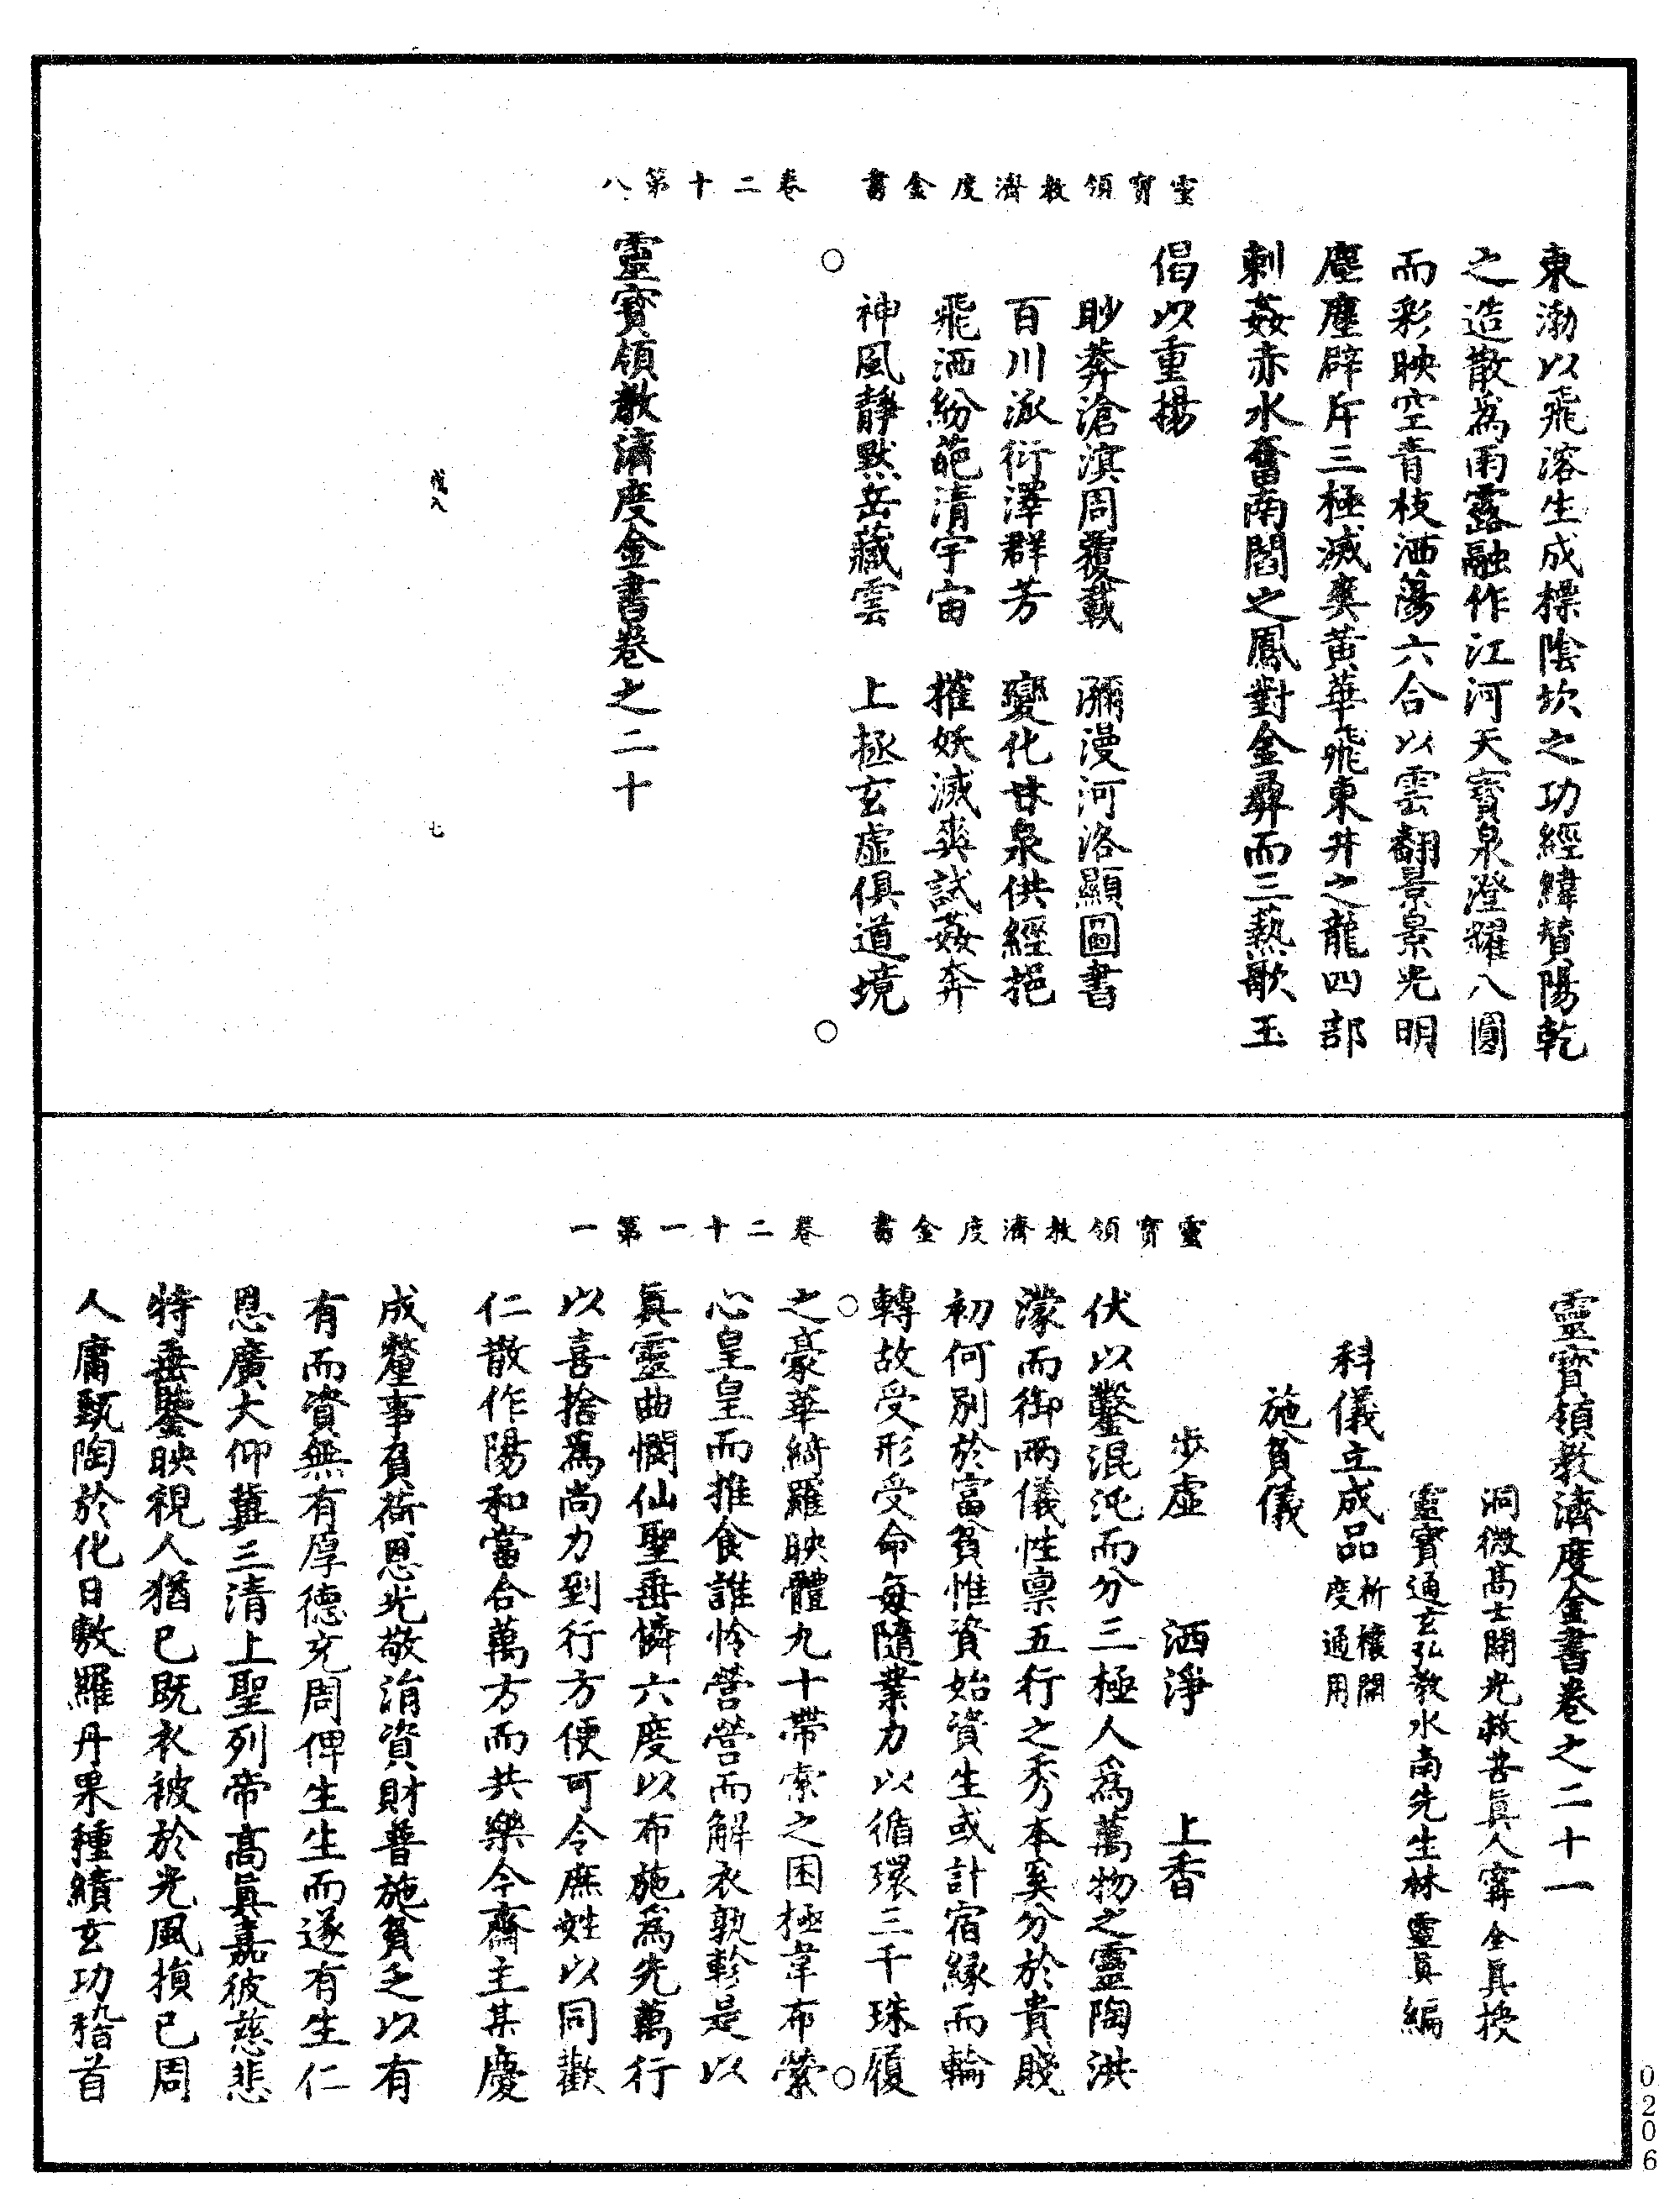 靈寶領教濟度金書　卷二十第八
東渤以飛溶生成標陰坎之功經緯贊陽乾
之造散為雨露融作江河天寶泉澄耀八圓
而彩映空青枝洒蕩六合以雲翻景景光明
塵塵辟斥三極滅爽黃華飛東井之龍四部
剿姦赤水奮南閻之鳳對金彝而三熱歌玉
偈以重揚
眇莽滄溟周覆載　瀰漫河洛顯圖書
百川派衍澤群芳　變化甘泉供經挹
飛洒紛葩清宇宙　摧妖滅爽試姦奔
神風靜默岳藏雲　上拯玄虛俱道境
靈寶領教濟度金書卷之二十
七
靈寶領教濟度金書　卷二十一第一
靈寶領教濟度金書卷之二十一
洞微高士開光救苦真人甯全真授
靈寶通玄弘教水南先生林靈真編
科儀立成品祈禳開度通用
施貧儀
步虛　洒淨　上香
伏以鑿混沌而分三極人為萬物之靈陶洪
濛而御兩儀性禀五行之秀本奚分於貴賤
初何別於富貧惟資始資生或計宿緣而輪
轉故受形受命每隨業力以循環三千珠履
之豪華綺羅映體九十帶索之困極韋布縈
心皇皇而推食誰怜營營而解衣孰軫是以
真靈曲憫仙聖垂憐六度以布施為先萬行
以喜捨為尚力到行方便可令庶姓以同歡
仁散作陽和當合萬方而共樂今齋主某慶
成釐事負荷恩光敬涓資財普施貧乏以有
有而資無有厚德充周俾生生而遂有生仁
恩廣大仰冀三清上聖列帝高真嘉彼慈悲
特垂鑒映視人猶己既衣被於光風損己周
人庸甄陶於化日敷羅丹果種續玄功稽首
0206